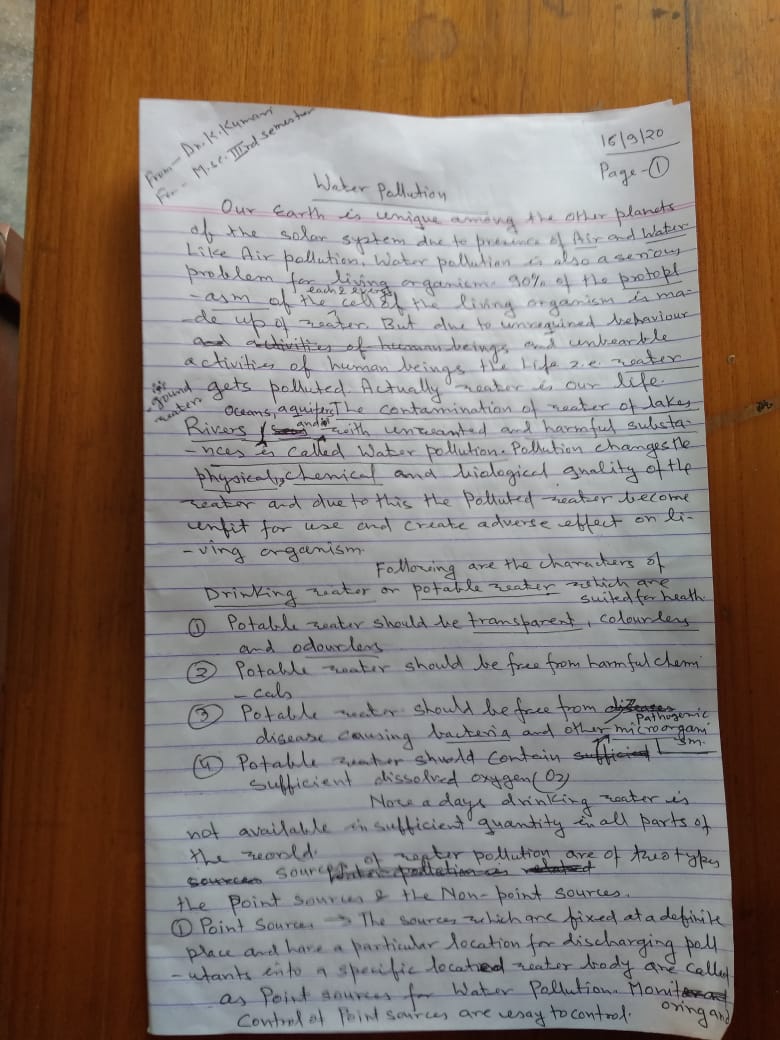 From - Dr. K. Kumari
For - M.sc. IIIrd semester
16/9/20
Page - 1
Water Pollution
Our Earth is unique among the other planets
of the solar system due to presence of Air and Water
Like Air pollution. Water pollution is also a serious
problem for living organism. 90% of the protopl
-asm of the cell of each & every the living organism is ma-
de up of water. But due to unrequired behaviour
and activities of human beings and unbearble
activities of human beings the Life i.e. water
gets polluted. Actually water is our life.
The contamination of water of lakes
Rivers, Oceans, aquifers and ground water with unwanted and harmful substa-
-nces is called Water pollution. Pollution changes the
physical, chemical and biological quality of the
water and due to this the Polluted water become
unfit for use and create adverse effect on li-
-ving organism.
Following are the characters of
Drinking water or potable water which are
suited for heath
① Potable water should be transparent, colourless
and odourless
② Potable water should be free from harmful chemi
-cals
③ Potable water should be free from diseases
disease causing bacteria and other Pathogenic microorgani
sm.
④ Potable water should contain sufficient
sufficient dissolved oxygen (O2)
Now a days drinking water is
not available in sufficient quantity in all parts of
the world.
sources Sources of water pollution are of two types
the Point sources & the Non-point sources.
① Point Sources → The sources which are fixed at a definite
place and have a particular location for discharging poll
-utants into a specific located water body are called
as Point sources for Water Pollution. Monitoring and
Control of Point sources are easy to control.